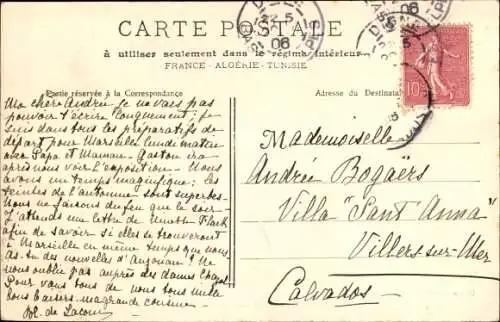 CARTE POSTALE
à utiliser seulement dans le régime intérieur
FRANCE - ALGÉRIE - TUNISIE
Partie réservée à la Correspondance
Adresse du Destinat
Ma chère Andrée je ne vais pas
pouvoir t'écrire longuement; je
suis dans tous les préparatifs de
départ pour Marseille lundi matin
avec Papa et Maman. Gaston ira
après nous voir l'exposition. Nous
avons un temps magnifique; les
teintes de l'automne sont superbes.
Nous ne faisons du feu que le soir.
J'attends une lettre de
afin de savoir si elles se trouveront
à Marseille en même temps que nous.
As-tu des nouvelles d' ? Ne
nous oublie pas auprès des dames
Pour vous tous de nous tous mille
bons baisers. ma grande
de Lacour
Mademoiselle
Andrée Bogaërs
Villa "Sant' Anna"
Villers-sur-Mer
Calvados
10
06
06